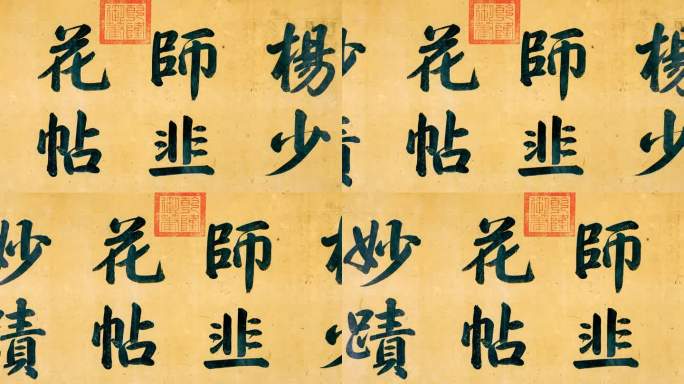 楊少
師韭
花帖
楊少
師韭
花帖
師韭
花帖
妙蹟
師韭
花帖
妙蹟